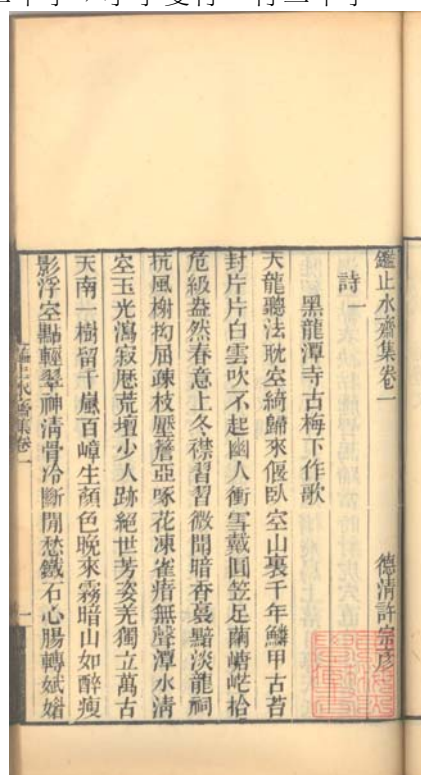 鑑止水齋集卷一
德清許宗彥
詩一
黑龍潭寺古梅下作歌
天龍聽法耽空綺歸來偃臥空山裏千年鱗甲古苔
封片片白雲吹不起幽人衝雪戴圓笠足繭𡾊𡵆拾
危級盎然春意上冬襟習習微聞暗香裛黯淡龍祠
抗風榭拘屈疎枝壓簷亞啄花凍雀瘖無聲潭水清
空玉光瀉寂歷荒壇少人跡絕世芳姿羌獨立萬古
天南一樹留千嵐百嶂生顏色晚來霧暗山如醉瘦
影浮空點輕翠神清骨冷斷閒愁鐵石心腸轉斌媚
鑑止水齋集卷一
一